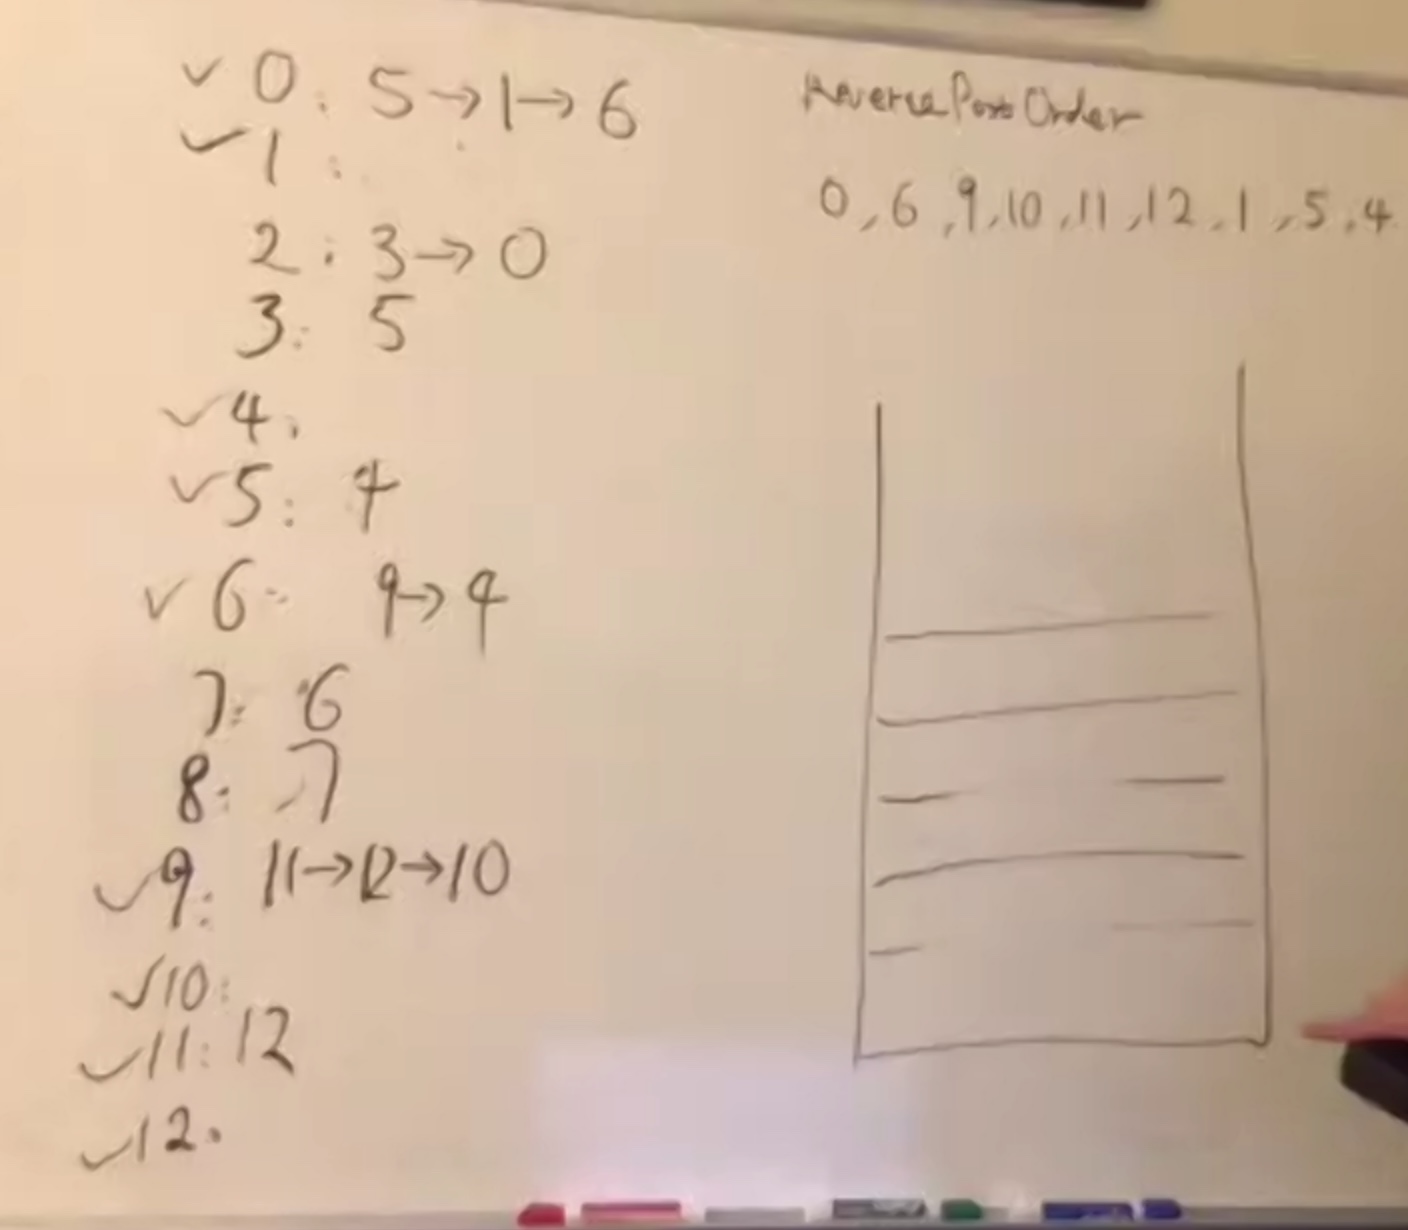 ✓ 0: 5→1→6
✓ 1:
2: 3→0
3: 5
✓ 4:
✓ 5: 4
✓ 6: 9→4
7: 6
8: 7
✓ 9: 11→12→10
✓ 10:
✓ 11: 12
✓ 12:
Reverse Post Order
0, 6, 9, 10, 11, 12, 1, 5, 4